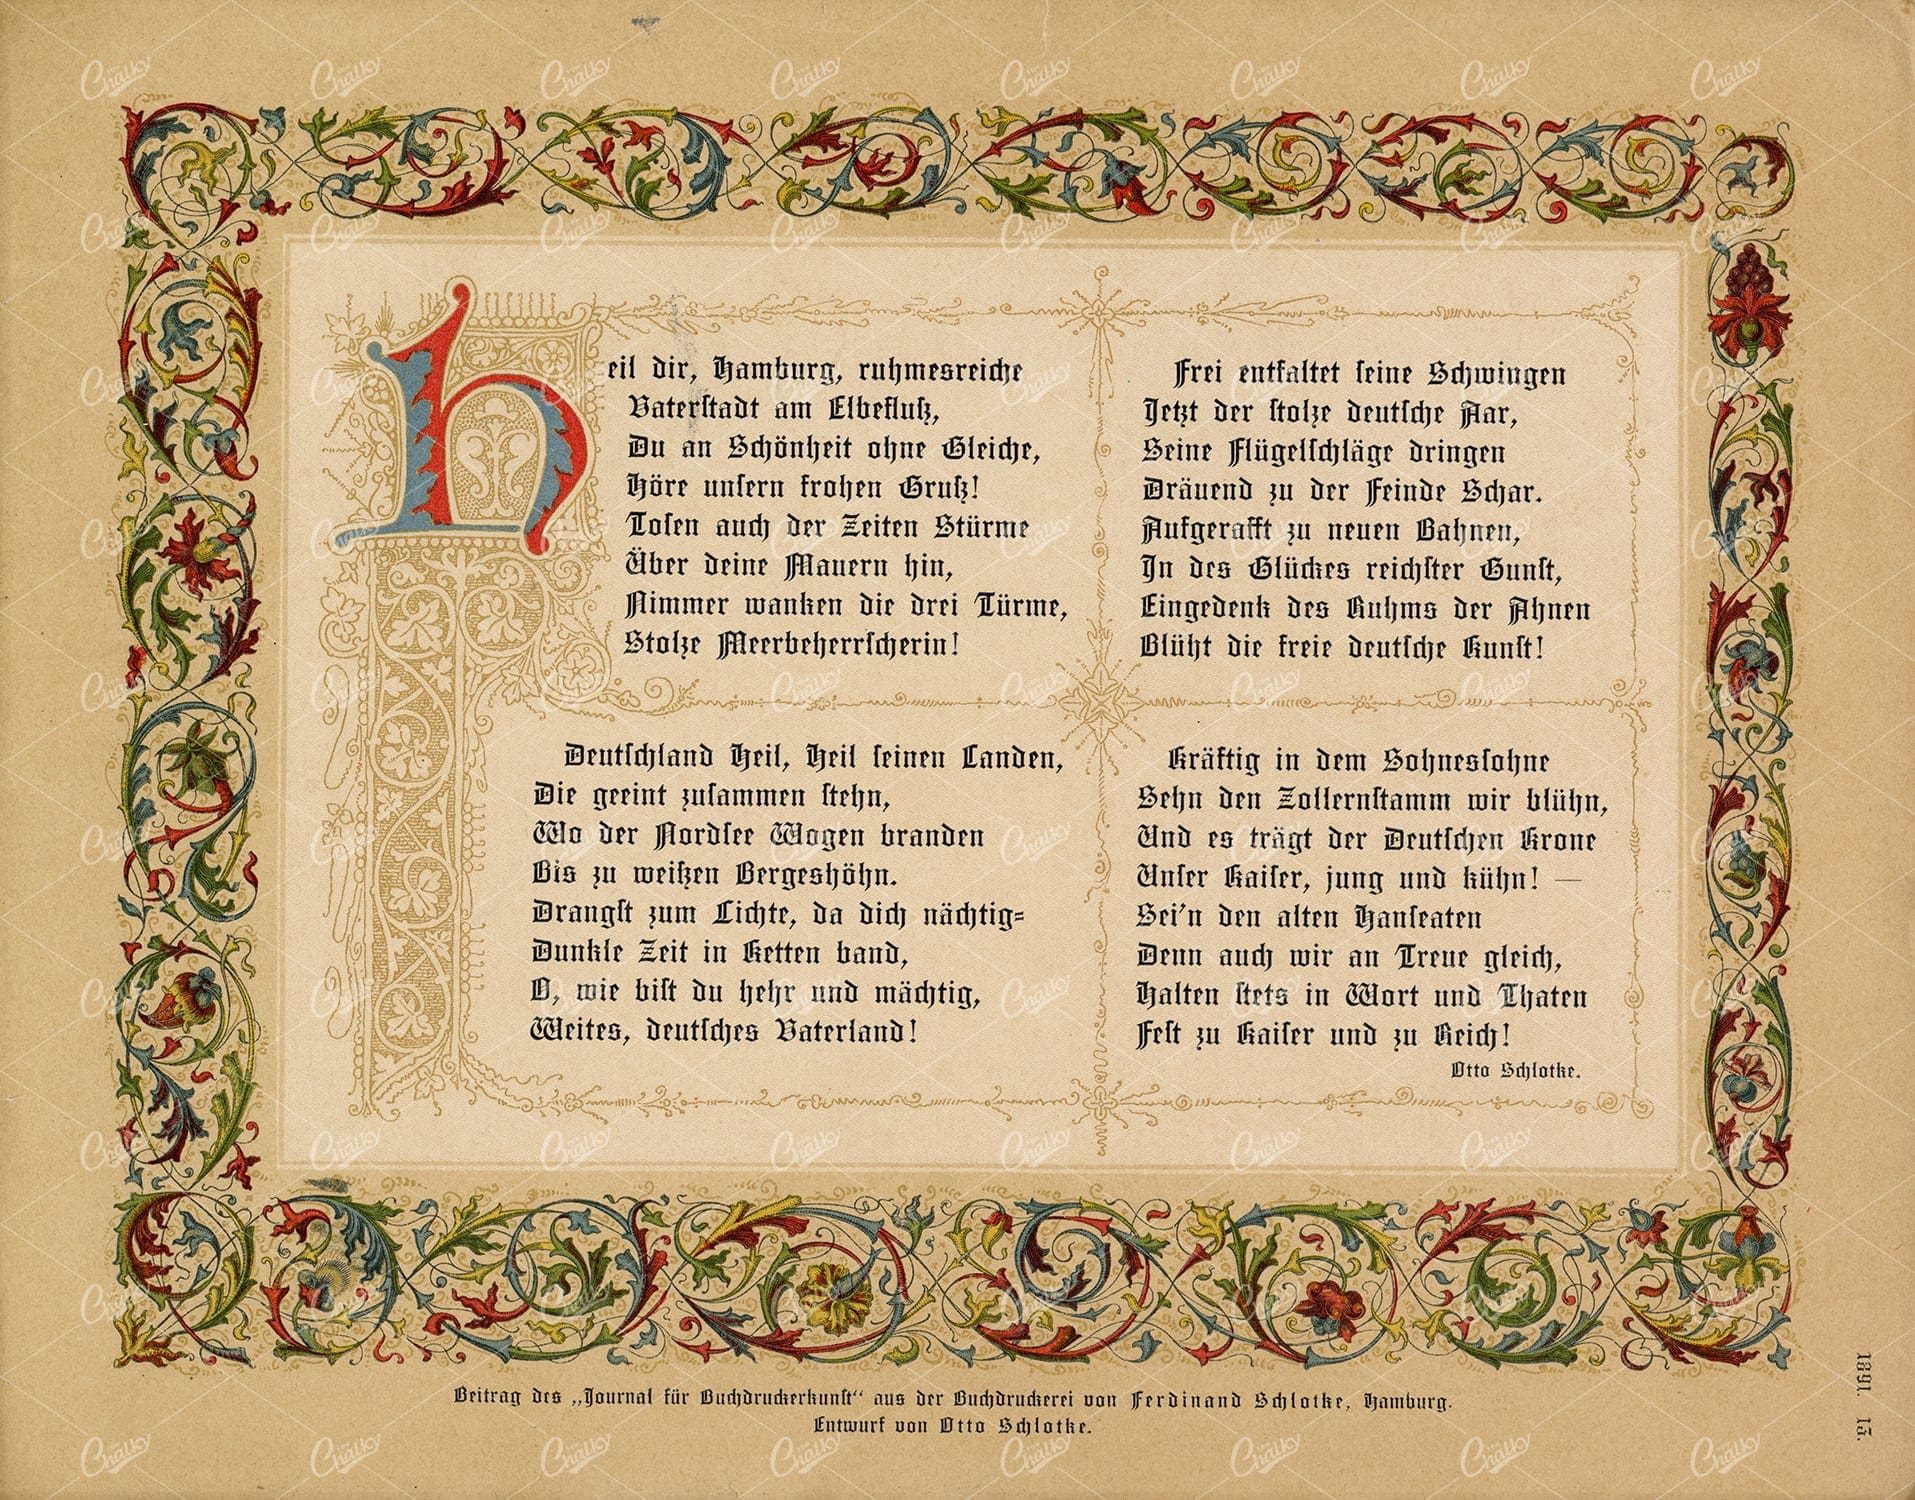 Heil dir, Hamburg, ruhmesreiche
Vaterstadt am Elbefluß,
Du an Schönheit ohne Gleiche,
Höre unsern frohen Gruß!
Tosen auch der Zeiten Stürme
Über deine Mauern hin,
Nimmer wanken die drei Türme,
Stolze Meerbeherrscherin!
Deutschland Heil, Heil seinen Landen,
Die geeint zusammen stehn,
Wo der Nordsee Wogen branden
Bis zu weißen Bergeshöhn.
Drangst zum Lichte, da dich nächtig-
Dunkle Zeit in Ketten band,
O, wie bist du hehr und mächtig,
Weites, deutsches Vaterland!
Frei entfaltet seine Schwingen
Jetzt der stolze deutsche Aar,
Seine Flügelschläge dringen
Dräuend zu der Feinde Schar.
Aufgerafft zu neuen Bahnen,
In des Glückes reichster Gunst,
Eingedenk des Ruhms der Ahnen
Blüht die freie deutsche Kunst!
Kräftig in dem Sohnessohne
Sehn den Zollernstamm wir blühn,
Und es trägt der Deutschen Krone
Unser Kaiser, jung und kühn! —
Sei'n den alten Hanseaten
Denn auch wir an Treue gleich,
Halten stets in Wort und Thaten
Fest zu Kaiser und zu Reich!
Otto Schlotke.
Beitrag des „Journal für Buchdruckerkunst“ aus der Buchdruckerei von Ferdinand Schlotke, Hamburg.
Entwurf von Otto Schlotke.
1891. 15.
Chalky